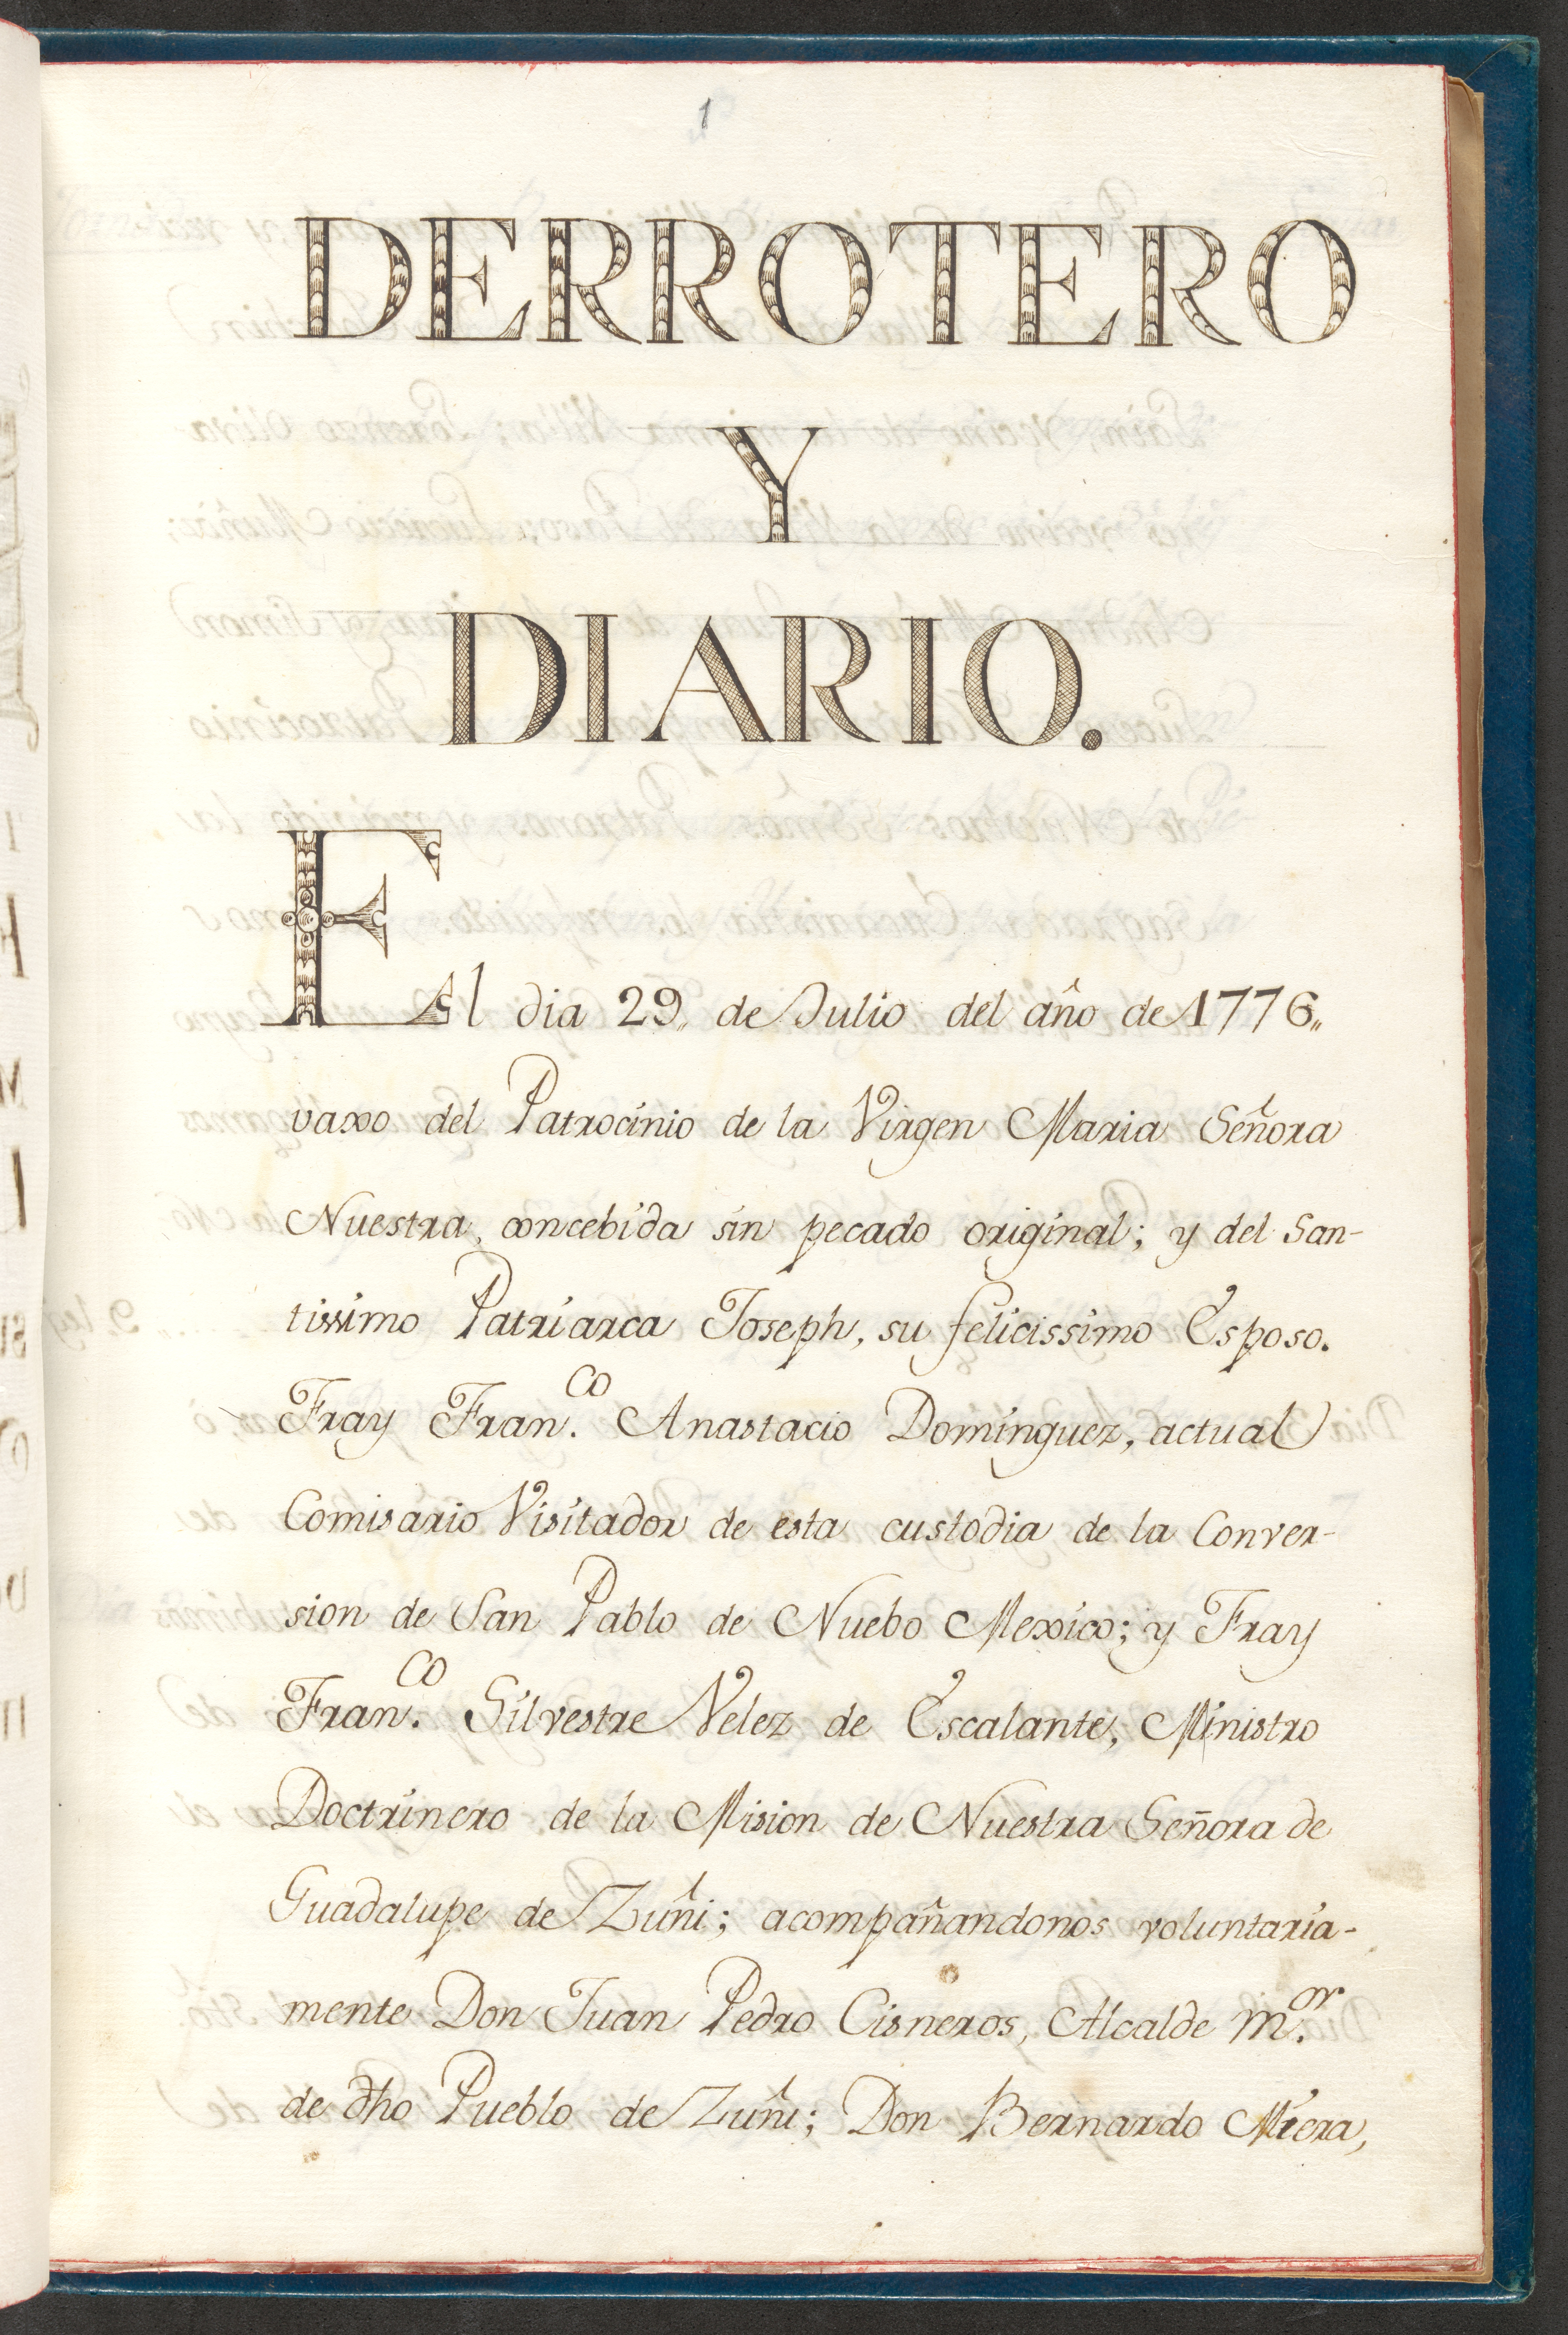 1
DERROTERO
Y
DIARIO.
El dia 29,, de Julio del año de 1776,,
vaxo del Patrocinio de la Virgen Maria Señora
Nuestra, concebida sin pecado original; y del San-
tissimo Patriarca Joseph, su felicissimo Esposo.
Fray Fran.co Anastacio Dominguez, actual
Comisario Visitador de esta custodia de la Conver-
sion de San Pablo de Nuebo Mexico; y Fray
Fran.co Silvestre Velez de Escalante, Ministro
Doctrinero de la Mision de Nuestra Señora de
Guadalupe de Zuñi; acompañandonos voluntaria-
mente Don Juan Pedro Cisneros, Alcalde m.or
de dho Pueblo de Zuñi; Don Bernardo Miera,